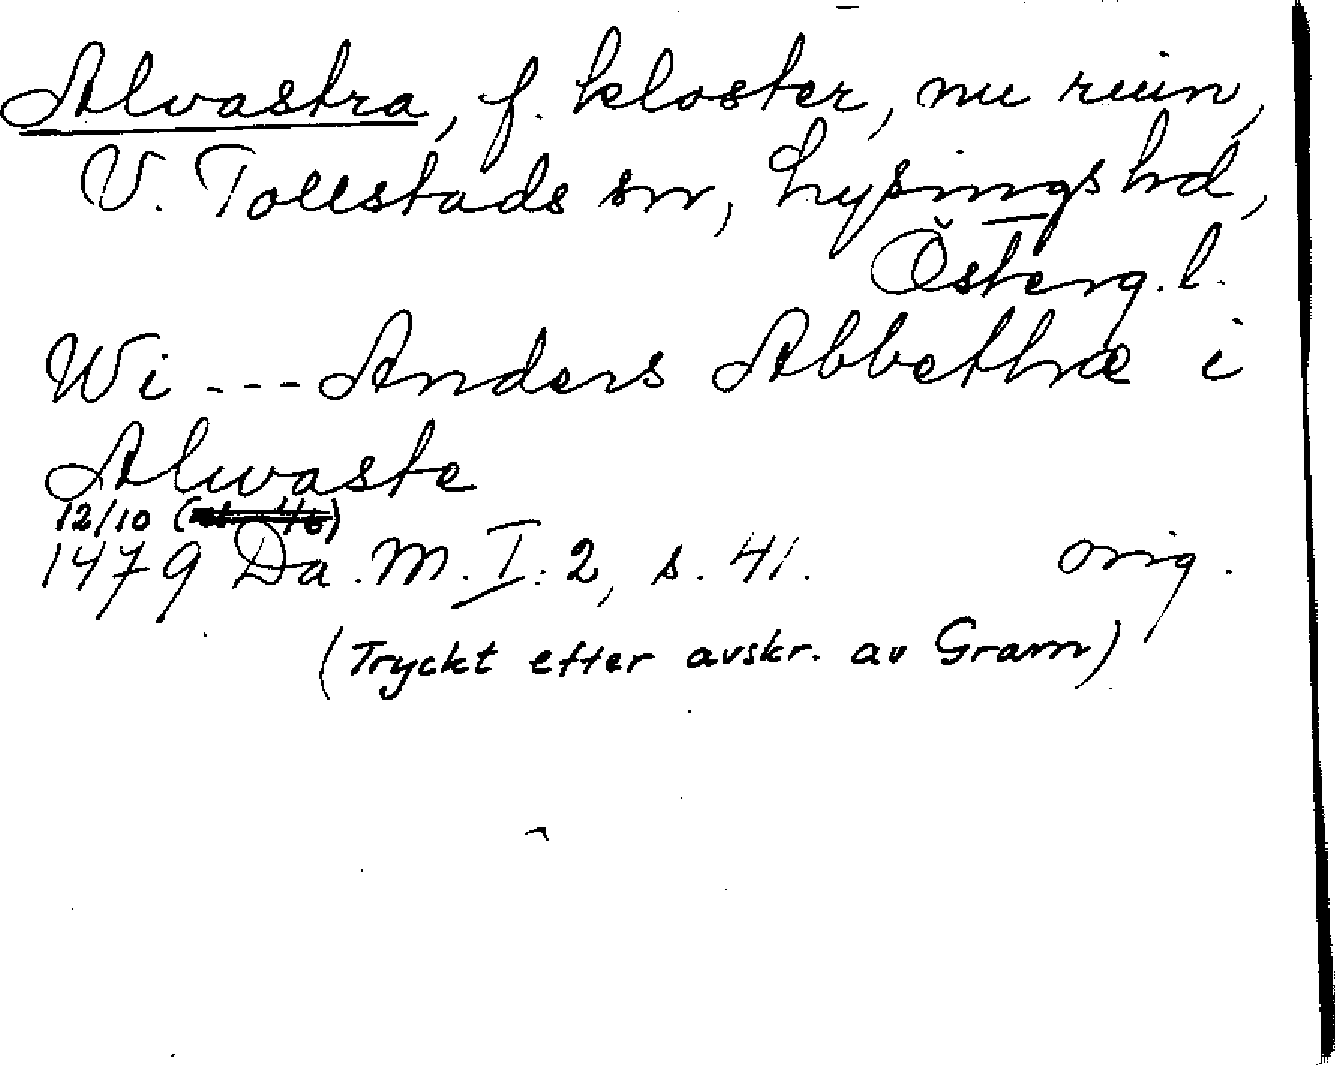 Alvastra, f. kloster, nu ruin,
V. Tollstads sn, Lysings hd,
Österg.l.
Wi --- Anders Abbethæ i
Alwaste
12/10
1479 Da. M. I: 2, s. 41. orig.
(Tryckt efter avskr. av Gram)